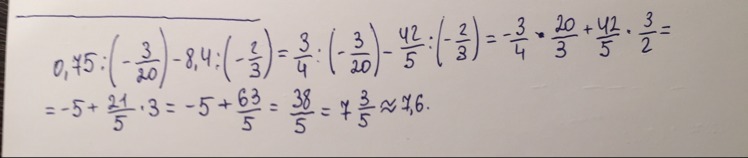 0,75:(-3/20)-8,4:(-2/3)=3/4:(-3/20)-42/5:(-2/3)=-3/4·20/3+42/5·3/2=
=-5+21/5·3=-5+63/5=38/5=7 3/5≈7,6.